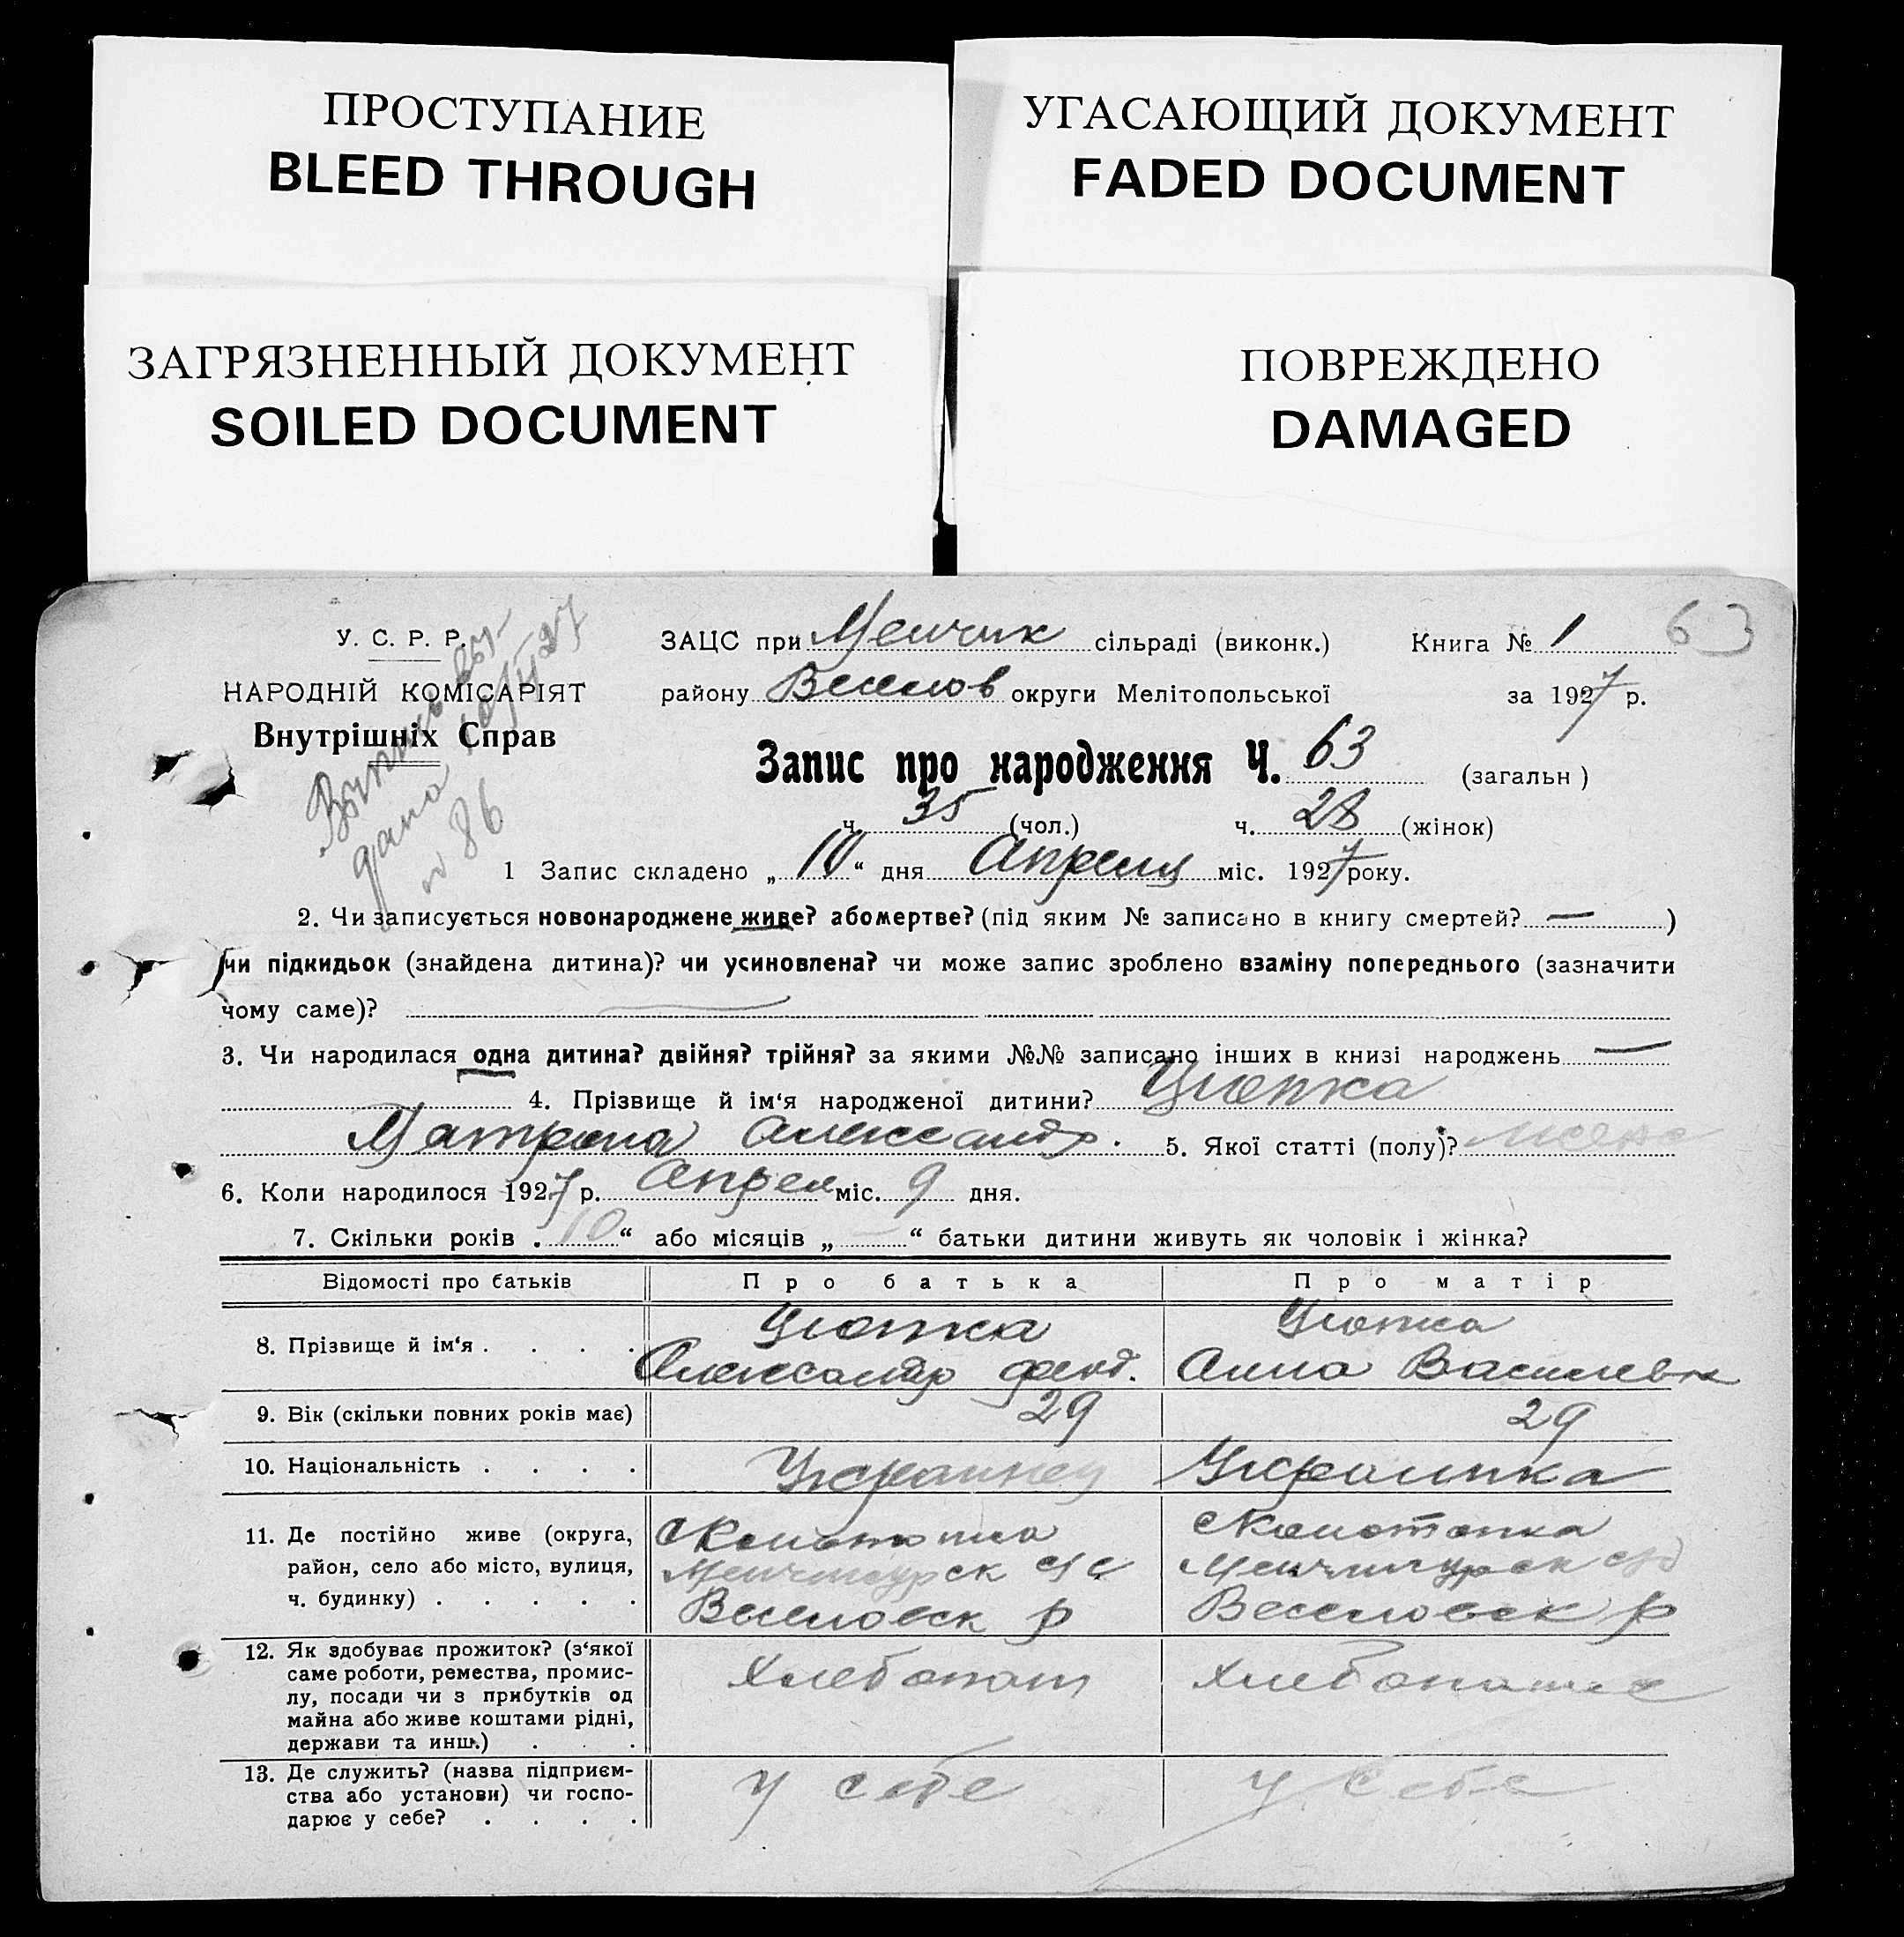 ПРОСТУПАНИЕ
BLEED THROUGH
УГАСАЮЩИЙ ДОКУМЕНТ
FADED DOCUMENT
ЗАГРЯЗНЕННЫЙ ДОКУМЕНТ
SOILED DOCUMENT
ПОВРЕЖДЕНО
DAMAGED
63
У. С. Р. Р.
НАРОДНІЙ КОМІСАРІЯТ
Внутрішніх Справ
дана
№ 86
ЗАЦС при Менчик сільраді (виконк.) Книга № 1
району Веселов округи Мелітопольської за 1927 р.
Запис про народження Ч. 63 (загальн)
ч. 35 (чол.) ч. 28 (жінок)
1 Запис складено „10“ дня Апреля міс. 1927 року.
2. Чи записується новонароджене живе? або мертве? (під яким № записано в книгу смертей? — )
чи підкидьок (знайдена дитина)? чи усиновлена? чи може запис зроблено взаміну попереднього (зазначити
чому саме)?
3. Чи народилася одна дитина? двійня? трійня? за якими №№ записано інших в книзі народжень —
4. Прізвище й ім‘я народженої дитини? Цюпка
Матрона Александр. 5. Якої статті (полу)? женс
6. Коли народилося 1927 р. Апрел міс. 9 дня.
7. Скільки років „10“ або місяців „—“ батьки дитини живуть як чоловік і жінка?
Відомості про батьків Про батька Про матір
8. Прізвище й ім‘я . . . . Цюпка Александр Феод. Цюпка Анна Василевна
9. Вік (скільки повних років має) 29 29
10. Національність . . . . Украинец Украинка
11. Де постійно живе (округа,
район, село або місто, вулиця,
ч. будинку) . . . . .
с Конотопка
Менчикурск с/с
Веселовск р
с Конотопка
Менчикурск с/с
Веселовск р
12. Як здобуває прожиток? (з‘якої
саме роботи, ремества, промис-
лу, посади чи з прибутків од
майна або живе коштами рідні,
держави та инш.) . . .
Хлебопаш
Хлебопаше
13. Де служить? (назва підприєм-
ства або установи) чи госпо-
дарює у себе? . . . .
у себе
у себе